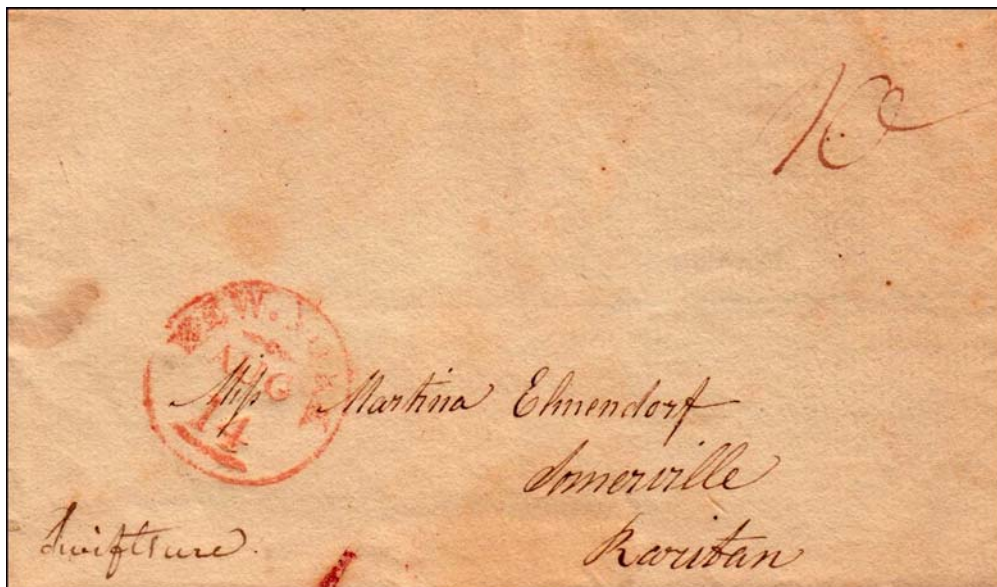 10
NEW. YORK
AUG
14
Miss Martina Elmendorf
Somerville
Raritan
Swiftsure